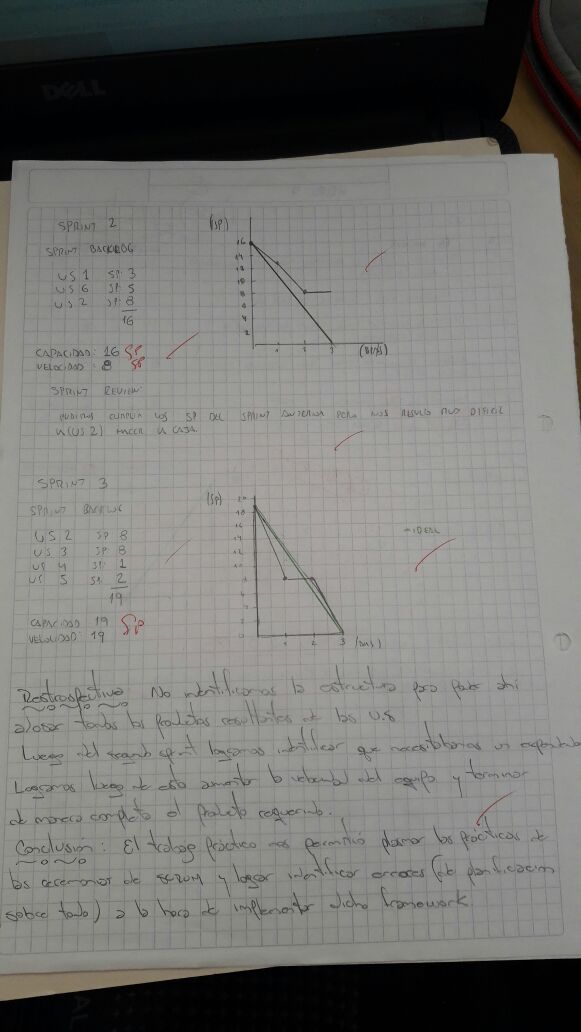 DELL
SPRINT 2
SPRINT BACKLOG
US 1 SP: 3
US 6 SP: 5
US 2 SP: 8
16
CAPACIDAD: 16 SP
VELOCIDAD: 8 SP
(SP)
16
14
12
10
8
6
4
2
1 2 3 (DIAS)
SPRINT REVIEW:
PUDIMOS CUMPLIR LOS SP DEL SPRINT ANTERIOR PERO NOS RESULTO MUY DIFICIL
LA (US 2) HACER LA CASA.
SPRINT 3
SPRINT BACKLOG
US 2 SP 8
US 3 SP 8
US 4 SP 1
US 5 SP 2
19
CAPACIDAD 19 SP
VELOCIDAD 19
(SP)
20
18
16
14
12
10
8
6
4
2
0
1 2 3 (DIAS)
- IDEAL
Restrospectiva: No identificamos la estructura para poder ahi
alojar todos los productos resultantes de las U.S
Luego del segundo sprint logramos identificar que necesitabamos un
Logramos luego de esto aumentar la velocidad del equipo y terminar
de manera completa el producto requerido.
Conclusión: El trabajo práctico nos permitió las prácticas de
las ceremonias de SCRUM y lograr identificar errores (de planificacion
sobre todo) a la hora de implementar dicho framework.